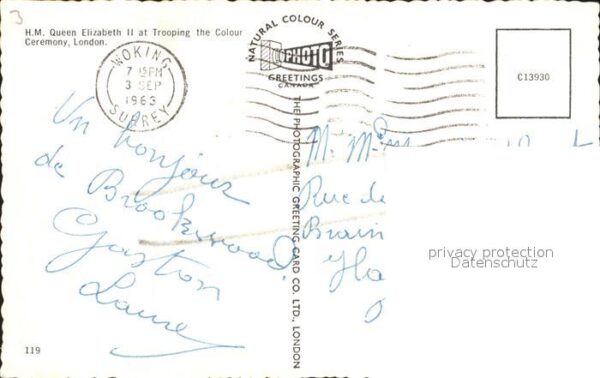 3
H.M. Queen Elizabeth II at Trooping the Colour
Ceremony, London.
WOKING
7 15PM
3 SEP
1963
SURREY
NATURAL COLOUR SERIES
PHOTO
GREETINGS
CANADA
C13930
Un bonjour
de Brookwood.
Gaston
Laure
THE PHOTOGRAPHIC GREETING CARD CO. LTD., LONDON
M. Mme
Rue de
Brain
Ha
privacy protection
Datenschutz
119